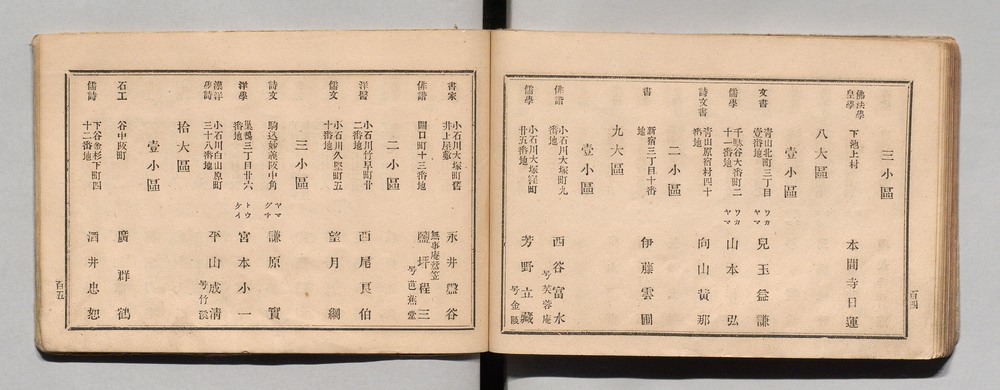 三小區
佛法學
皇學
下池上村
本間寺日運
八大區
壹小區
文書
青山北町三丁目
壹番地
ワカ
ヤマ
兒玉益謙
儒學
千駄谷大番町二
十一番地
ワカ
ヤマ
山本弘
詩文書
青山原宿村四十
番地
向山黃那
二小區
書
新宿三丁目十番
地
伊藤雲圃
九大區
壹小區
俳諧
小石川大塚町九
番地
西谷富水
号芙蓉庵
儒學
小石川大塚窪町
廿五番地
芳野立藏
号金陵
百四
書家
小石川大塚町舊
井上屋敷
永井盤谷
俳諧
關口町十三番地
無事庵
鹽坪程三
号芭蕉堂
二小區
洋醫
小石川竹早町廿
二番地
西尾艮伯
儒文
小石川久堅町五
十番地
望月綱
三小區
詩文
駒込妙義坂中角
ヤマ
グチ
謙原實
洋學
巣鴨三丁目廿六
番地
トウ
ケイ
宮本小一
漢洋
學詩
小石川白山原町
三十八番地
平山成清
号竹溪
拾大區
壹小區
石工
谷中坂町
廣群鶴
儒詩
下谷金杉下町四
十二番地
酒井忠恕
百五